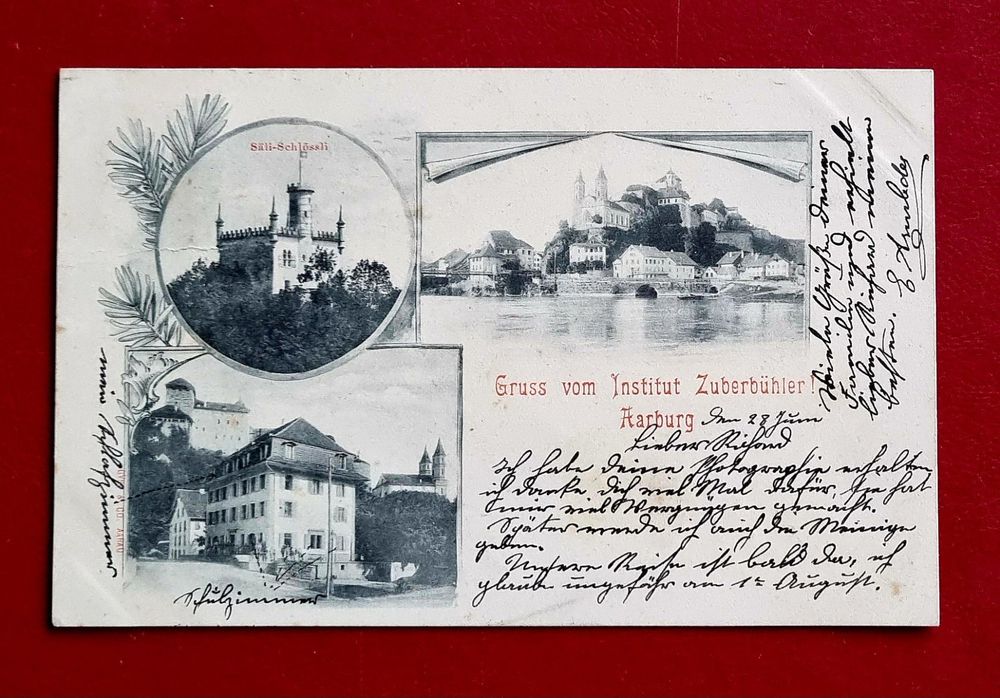 Säli-Schlössli
Gruss vom Institut Zuberbühler!
Aarburg den 28 Juni
Lieber Richard
Ich habe deine Photographie erhalten
ich danke dir viel Mal dafür. Sie hat
mir viel Vergnügen gemacht.
Später werde ich auch die Meinige
geben.
Unsere Reise ist bald da, ich
glaube ungefähr am 1ten August.
Viele Grüße deiner
Familie und
lieber Richard meine
besten.
mein Schlafzimmer
Schulzimmer